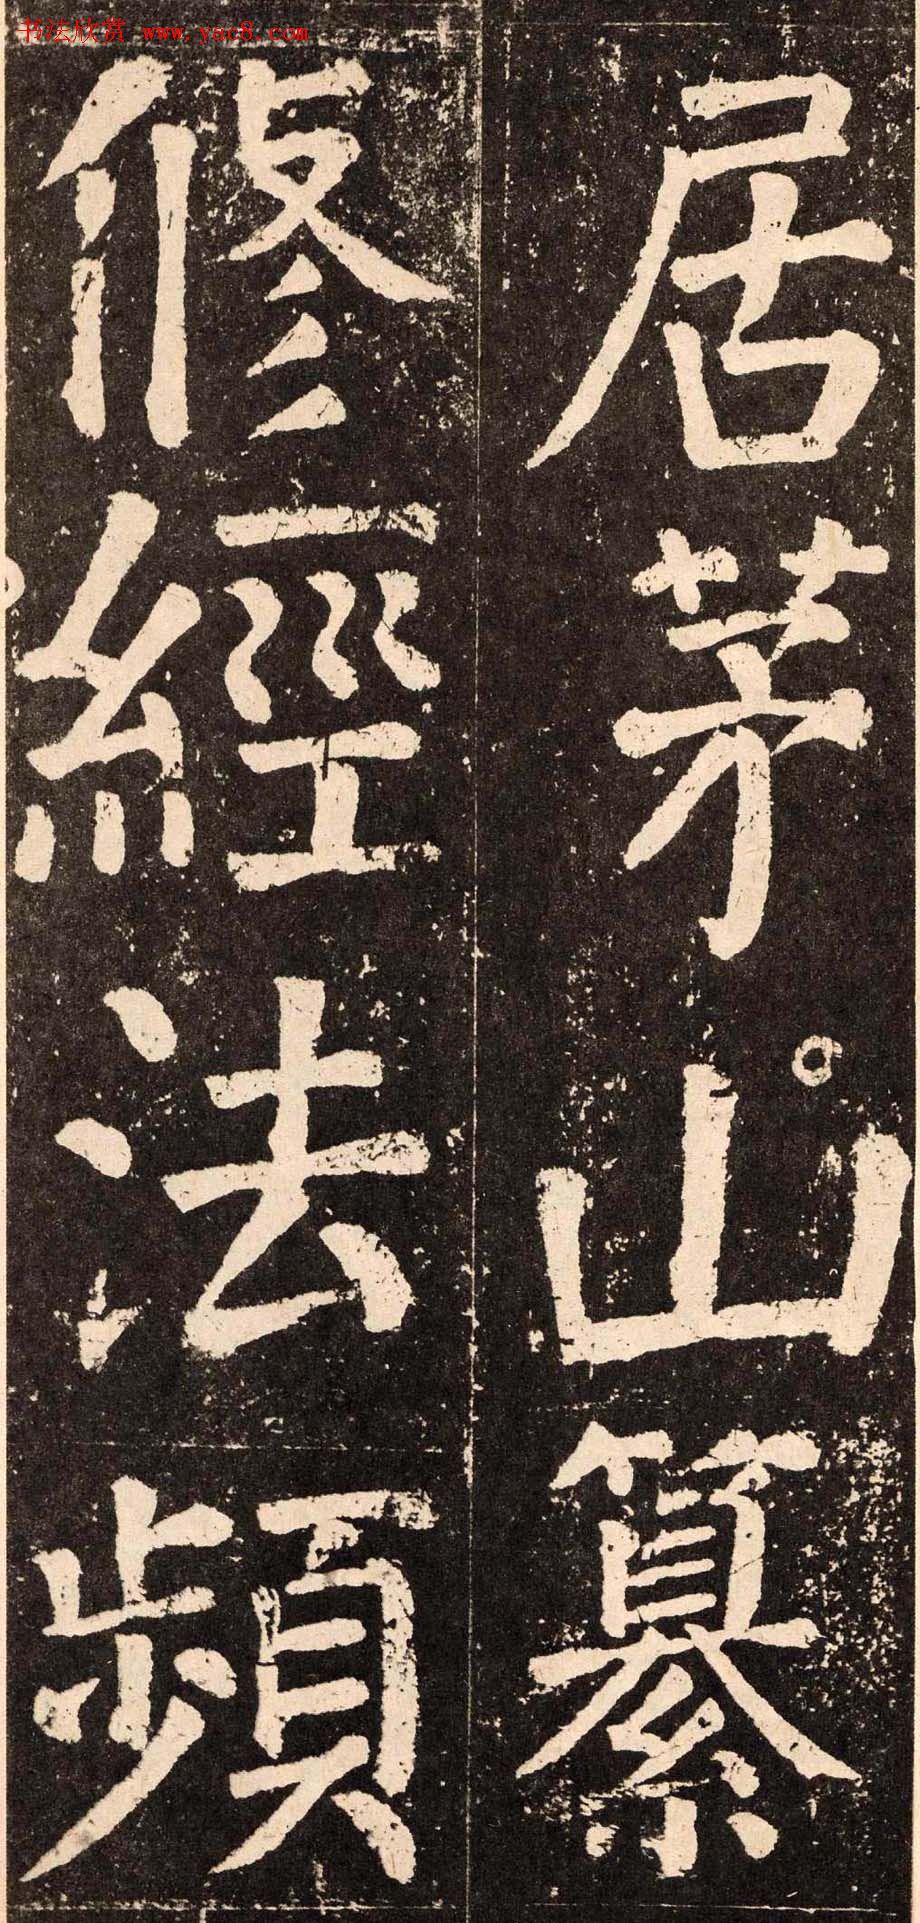 书法欣赏 www.yac8.com
居茅山纂
修經法頻